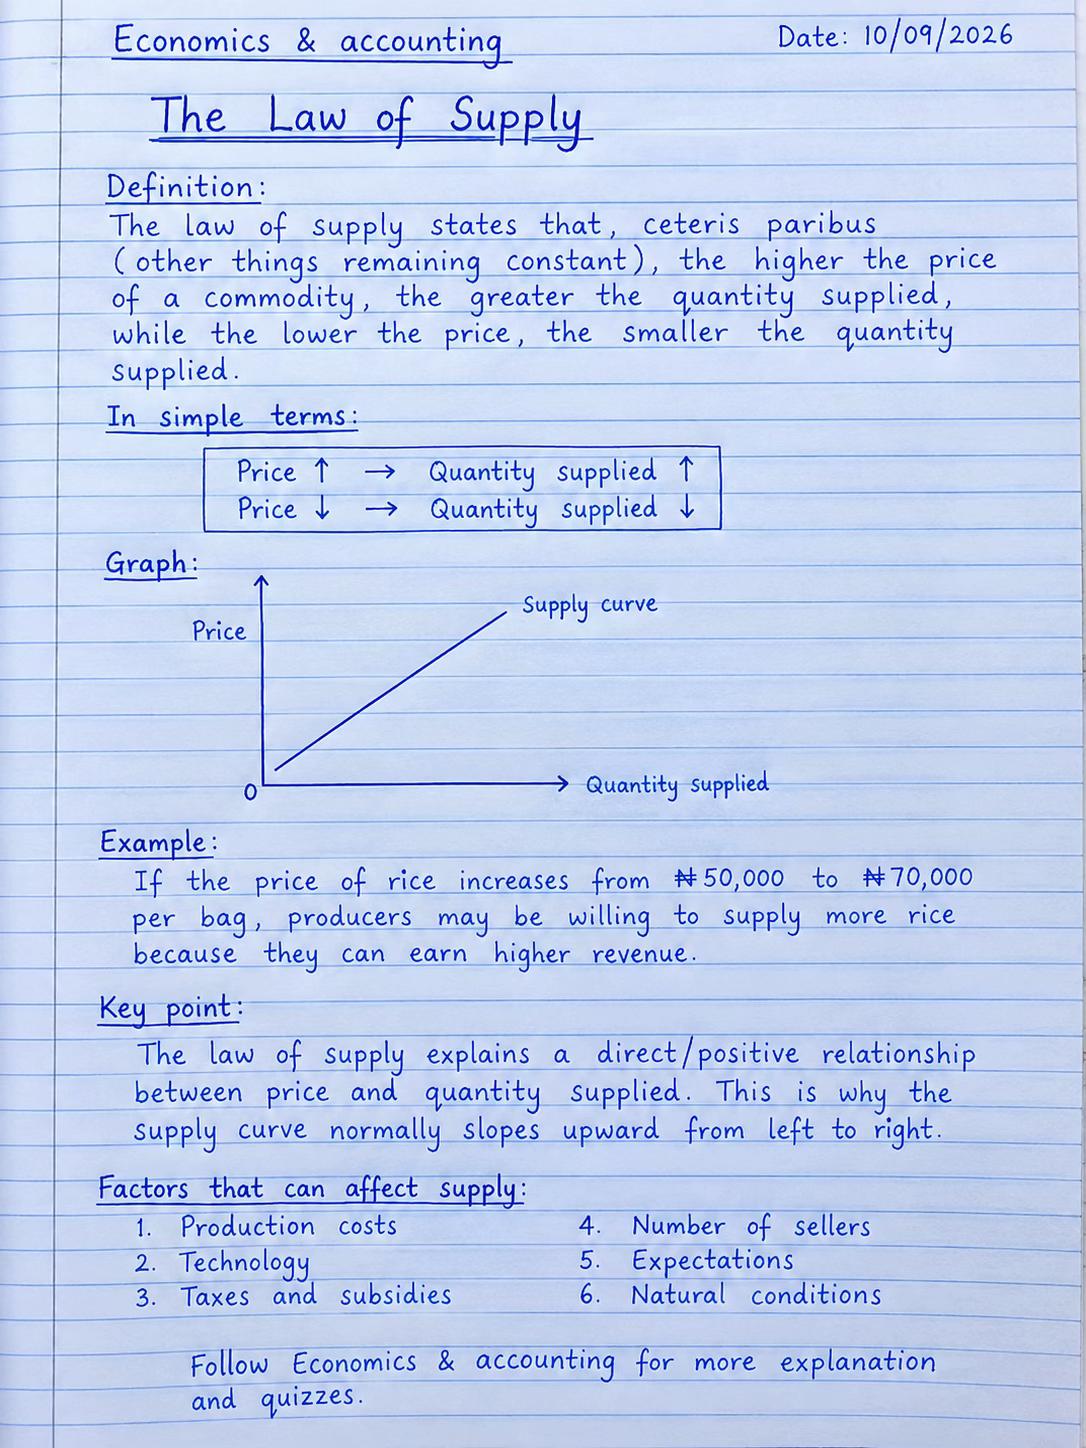 Economics & accounting
Date: 10/09/2026
The Law of Supply
Definition:
The law of supply states that, ceteris paribus
(other things remaining constant), the higher the price
of a commodity, the greater the quantity supplied,
while the lower the price, the smaller the quantity
supplied.
In simple terms:
Price ↑ → Quantity supplied ↑
Price ↓ → Quantity supplied ↓
Graph:
Supply curve
Price
0
Quantity supplied
Example:
If the price of rice increases from ₦50,000 to ₦70,000
per bag, producers may be willing to supply more rice
because they can earn higher revenue.
Key point:
The law of supply explains a direct/positive relationship
between price and quantity supplied. This is why the
supply curve normally slopes upward from left to right.
Factors that can affect supply:
1. Production costs
2. Technology
3. Taxes and subsidies
4. Number of sellers
5. Expectations
6. Natural conditions
Follow Economics & accounting for more explanation
and quizzes.